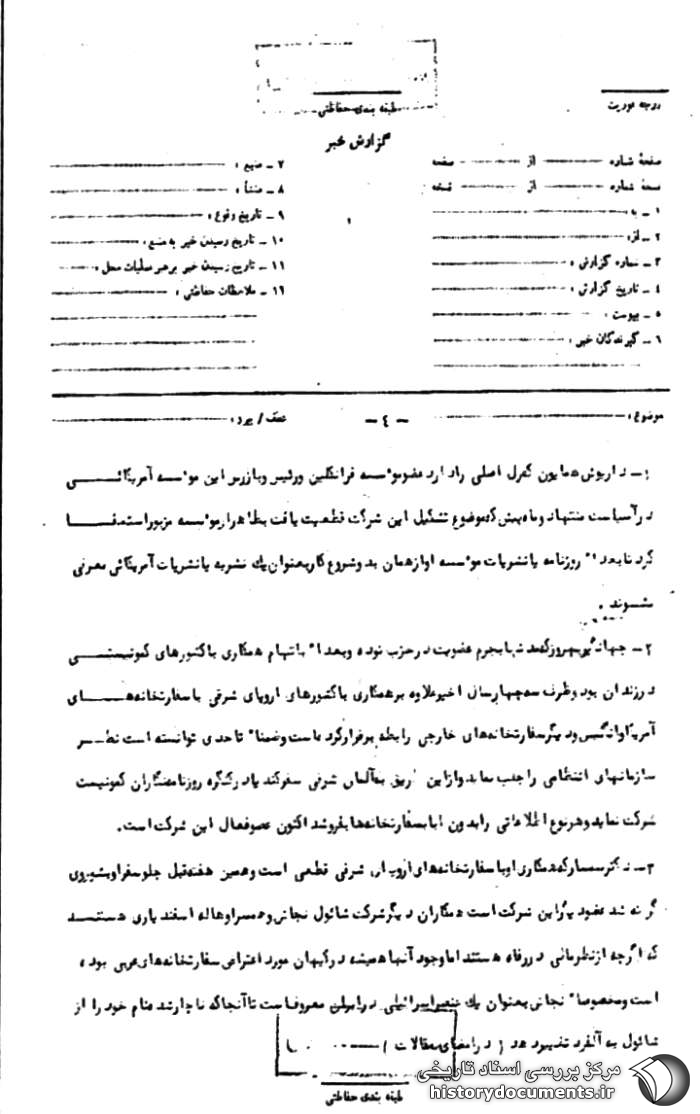 درجه فوریت
طبقه بندی حفاظتی
گزارش خبر
صفحهٔ شماره از صفحه
نسخهٔ شماره از نسخه
۱ ـ به
۲ ـ از:
۳ ـ شماره گزارش:
۴ ـ تاریخ گزارش:
۵ ـ پیوست:
۶ ـ گیرندگان خبر:
۷ ـ منبع:
۸ ـ منشأ:
۹ ـ تاریخ وقوع:
۱۰ ـ تاریخ رسیدن خبر به منبع:
۱۱ ـ تاریخ رسیدن خبر برهبر عملیات محل:
۱۲ ـ ملاحظات حفاظتی:
موضوع: - ٤ - عطف / پیرو:
۱ـ داریوش همایون کنترل اصلی را دارد عضو موسسه فرانکلین ورئیس وبازرس این موسسه آمریکائی
درآسیاست منتها دو ماه پیش که موضوع تشکیل این شرکت قطعیت یافت بظاهر از موسسه مزبور استعفا
کرد تا بعداً روزنامه یا نشریات موسسه او از همان بدو شروع کار بعنوان یک نشریه یا نشریات آمریکائی معرفی
نشوند.
۲ـ جهانگیر بهروز که مدتها بجرم عضویت در حزب توده وبعداً باتهام همکاری با کشورهای کمونیستی
در زندان بود وظرف سه چهار سال اخیر علاوه بر همکاری با کشورهای اروپای شرقی با سفارتخانه های
آمریکا وانگلیس ودیگر سفارتخانه های خارجی رابطه برقرار کرده است وضمناً تا حدی توانسته است نظر
سازمانهای انتظامی را جلب نماید واز این طریق بآلمان شرقی سفر کند یا در کنگره روزنامه نگاران کمونیست
شرکت نماید وهر نوع اطلاعاتی را بدون ابا بسفارتخانه ها بفروشد اکنون عضو فعال این شرکت است.
۳ـ دکتر سمسار که همکاری او با سفارتخانه های اروپای شرقی قطعی است وهمین هفته قبل جلو سفر او بشوروی
گرفته شد عضو دیگر این شرکت است همکاران دیگر شرکت شائول نجاتی وهمسر او هاله اسفندیاری هستند
که اگرچه از نظر مالی در رفاه هستند اما وجود آنها همیشه در کیهان مورد اعتراض سفارتخانه های عربی بوده
است ومخصوصاً نجاتی بعنوان یک عنصر اسرائیلی در ایران معروف است تا آنجا که ناچار شد نام خود را از
شائول به آلفرد تغییر دهد (در امضای مقالات)
طبقه بندی حفاظتی
مرکز بررسی اسناد تاریخی
historydocuments.ir